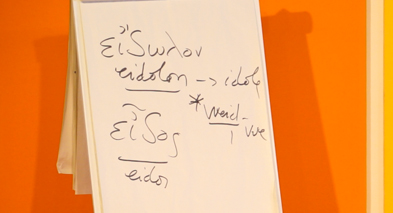 εἴδωλον
eidolon → idole
*weid-
vue
εἶδος
eidos